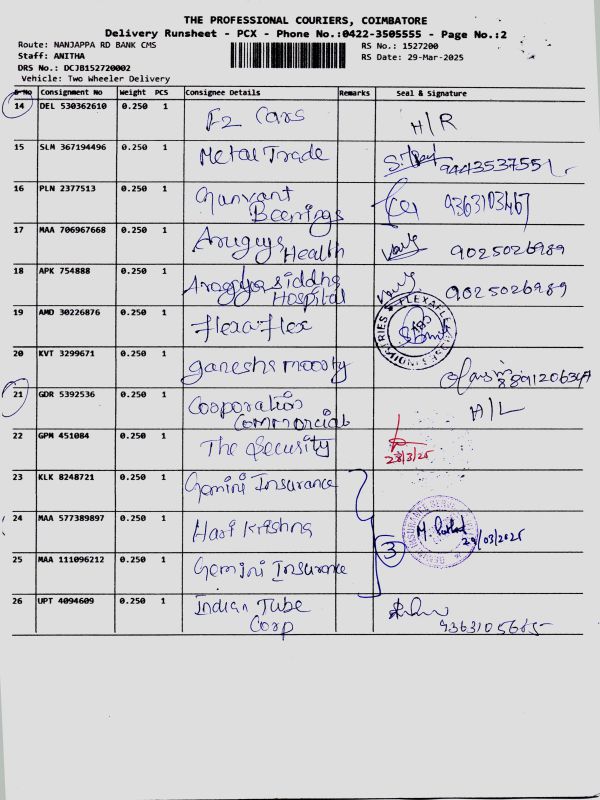 THE PROFESSIONAL COURIERS, COIMBATORE
Delivery Runsheet - PCX - Phone No.:0422-3505555 - Page No.:2
Route: NANJAPPA RD BANK CMS
RS No.: 1527200
Staff: ANITHA
RS Date: 29-Mar-2025
DRS No.: DCJB152720002
Vehicle: Two Wheeler Delivery
S No Consignment No Weight PCS Consignee Details Remarks Seal & Signature
14 DEL 530362610 0.250 1 F2 Cars H/R
15 SLM 367194496 0.250 1 Metal Trade 9443537551
16 PLN 2377513 0.250 1 Gunvant 9363103467
Beerings
17 MAA 706967668 0.250 1 Aruguys 9025026989
Health
18 APK 754888 0.250 1 Arogya siddha 9025026989
Hospital
19 AMD 30226876 0.250 1 flexa flex FLEXAFLEX
20 KVT 3299671 0.250 1 ganesha moorty
21 GDR 5392536 0.250 1 Cooporation H/L
Commercial
22 GPM 451084 0.250 1 The Security
23 KLK 8248721 0.250 1 Gemini Insurance
24 MAA 577389897 0.250 1 Hari Krishna 3 29/03/2025
25 MAA 111096212 0.250 1 Gemini Insurance
26 UPT 4094609 0.250 1 Indian Tube
Corp 9363105685